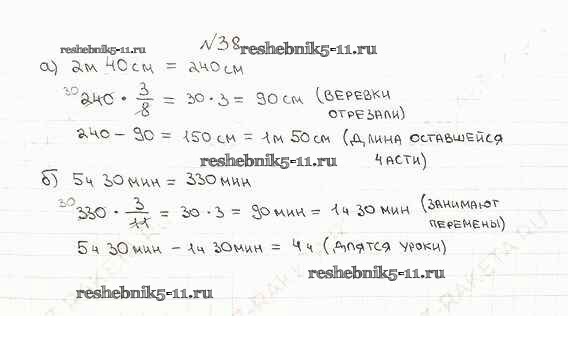 №38
reshebnik5-11.ru reshebnik5-11.ru
а) 2м 40см = 240см
30 240 · 3/8 = 30·3 = 90см (ВЕРЕВКИ
ОТРЕЗАЛИ)
240 - 90 = 150см = 1м 50см (ДЛИНА ОСТАВШЕЙСЯ
ЧАСТИ)
reshebnik5-11.ru
б) 5ч 30мин = 330мин
30 330 · 3/11 = 30·3 = 90мин = 1ч 30мин (ЗАНИМАЮТ
ПЕРЕМЕНЫ)
5ч 30мин - 1ч 30мин = 4ч (ДЛЯТСЯ УРОКИ)
reshebnik5-11.ru
reshebnik5-11.ru